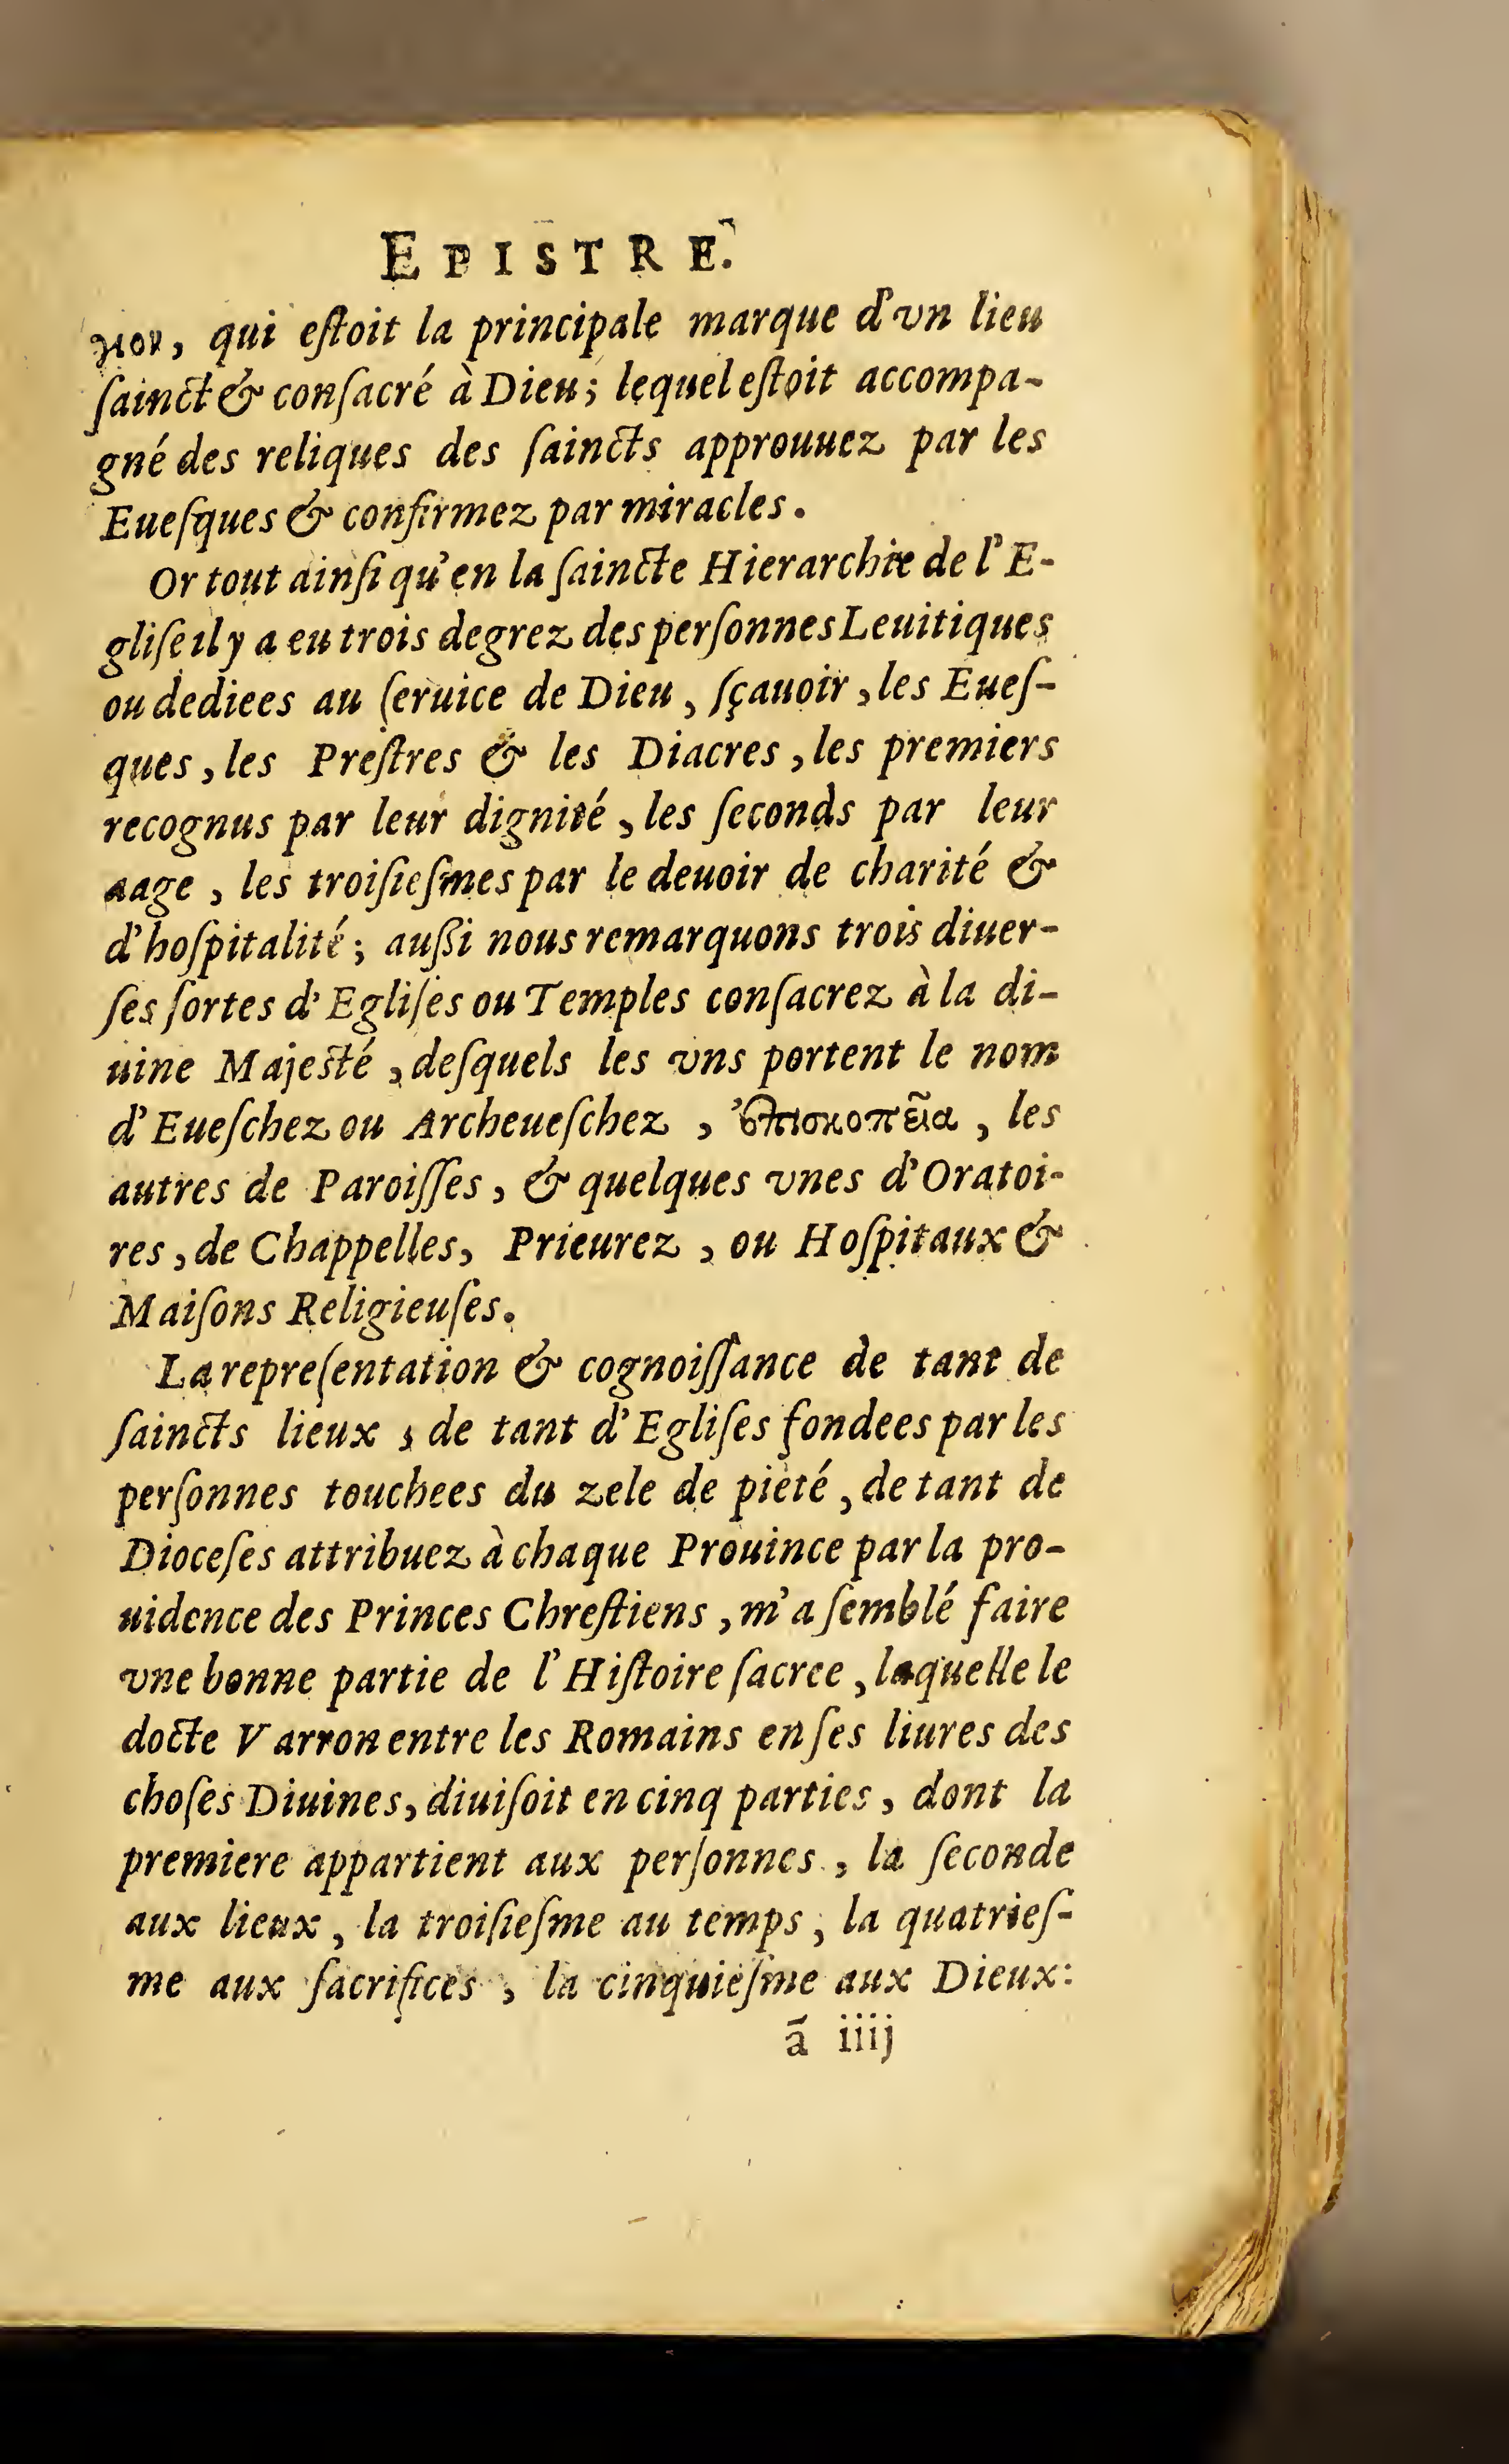 EPISTRE.
γιον, qui eſtoit la principale marque d'vn lieu
ſainct & conſacré à Dieu; lequel eſtoit accompa-
gné des reliques des ſaincts approuuez par les
Eueſques & confirmez par miracles.
Or tout ainſi qu'en la ſaincte Hierarchie de l'E-
gliſe il y a eu trois degrez des perſonnes Leuitiques
ou dediees au ſeruice de Dieu, ſçauoir, les Eueſ-
ques, les Preſtres & les Diacres, les premiers
recognus par leur dignité, les ſeconds par leur
aage, les troiſieſmes par le deuoir de charité &
d'hoſpitalité; auſſi nous remarquons trois diuer-
ſes ſortes d'Egliſes ou Temples conſacrez à la di-
uine Majeſté, deſquels les vns portent le nom
d'Eueſchez ou Archeueſchez, ἐπισκοπεῖα, les
autres de Paroiſſes, & quelques vnes d'Oratoi-
res, de Chappelles, Prieurez, ou Hoſpitaux &
Maiſons Religieuſes.
La repreſentation & cognoiſſance de tant de
ſaincts lieux, de tant d'Egliſes fondees par les
perſonnes touchees du zele de pieté, de tant de
Dioceſes attribuez à chaque Prouince par la pro-
uidence des Princes Chreſtiens, m'a ſemblé faire
vne bonne partie de l'Hiſtoire ſacree, laquelle le
docte Varron entre les Romains en ſes liures des
choſes Diuines, diuiſoit en cinq parties, dont la
premiere appartient aux perſonnes, la ſeconde
aux lieux, la troiſieſme au temps, la quatrieſ-
me aux ſacrifices, la cinquieſme aux Dieux:
ã iiij